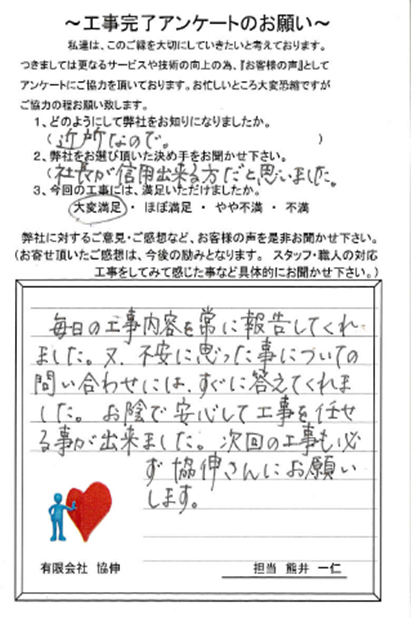 ～工事完了アンケートのお願い～
私達は、このご縁を大切にしていきたいと考えております。
つきましては更なるサービスや技術の向上の為、『お客様の声』として
アンケートにご協力を頂いております。お忙しいところ大変恐縮ですが
ご協力の程お願い致します。
1、どのようにして弊社をお知りになりましたか。
（近所なので。）
2、弊社をお選び頂いた決め手をお聞かせ下さい。
（社長が信用出来る方だと思いました。
3、今回の工事には、満足いただけましたか。
大変満足・ほぼ満足・やや不満・不満
弊社に対するご意見・ご感想など、お客様の声を是非お聞かせ下さい。
（お寄せ頂いたご感想は、今後の励みとなります。スタッフ・職人の対応
工事をしてみて感じた事など具体的にお聞かせ下さい。）
毎日の工事内容を常に報告してくれ
ました。又、不安に思った事についての
問い合わせには、すぐに答えてくれま
した。お陰で安心して工事を任せ
る事が出来ました。次回の工事も必
ず協伸さんにお願い
します。
有限会社 協伸
担当 熊井 一仁